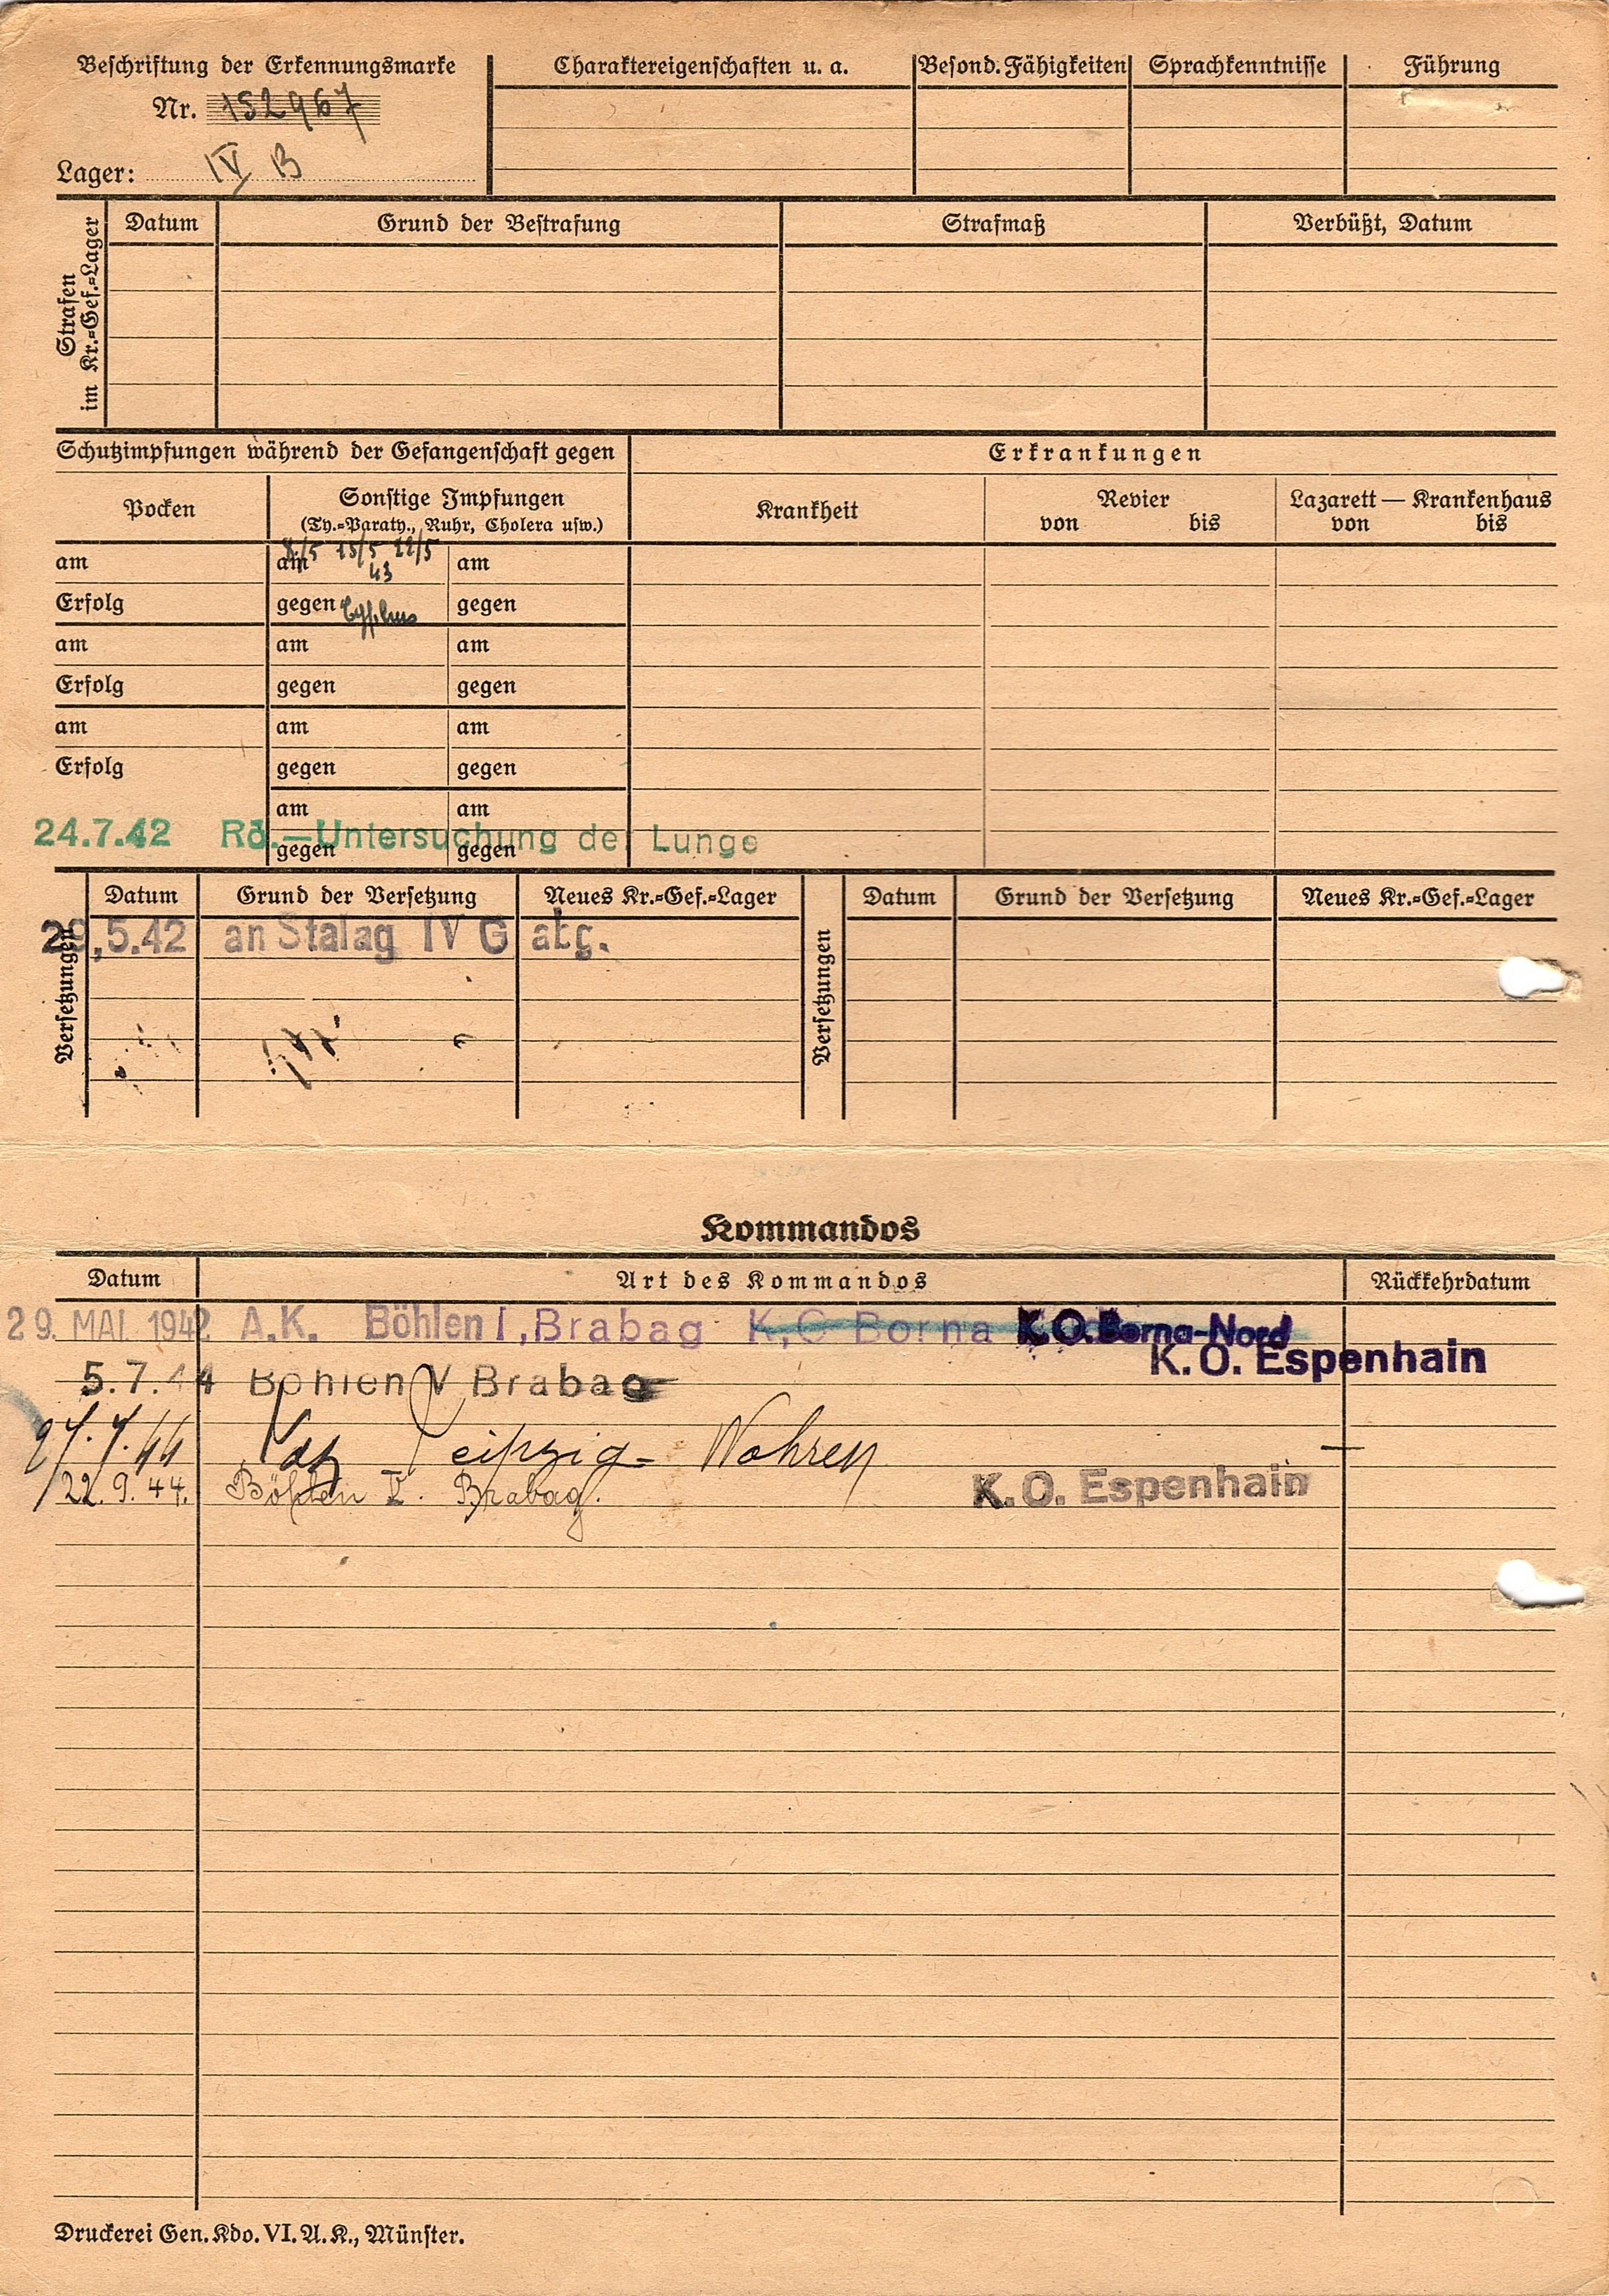 Beschriftung der Erkennungsmarke
Nr. 152967
Lager: IV B
Charaktereigenschaften u. a.
Besond. Fähigkeiten
Sprachkenntnisse
Führung
Strafen im Kr.=Gef.=Lager
Datum Grund der Bestrafung Strafmaß Verbüßt, Datum
Schutzimpfungen während der Gefangenschaft gegen
Erkrankungen
Pocken
Sonstige Impfungen
(Ty.=Paraty., Ruhr, Cholera usw.)
Krankheit
Revier
von bis
Lazarett — Krankenhaus
von bis
am am 8/5 15/5 22/5 43 am
Erfolg gegen Typhus gegen
am am am
Erfolg gegen gegen
am am am
Erfolg gegen gegen
am am
24.7.42 Rö.—Untersuchung der Lunge
gegen gegen
Versetzungen
Datum Grund der Versetzung Neues Kr.=Gef.=Lager
29.5.42 an Stalag IV G abg.
Versetzungen
Datum Grund der Versetzung Neues Kr.=Gef.=Lager
Kommandos
Datum Art des Kommandos Rückkehrdatum
29. MAI 1942 A.K. Böhlen I, Brabag K.O Borna K.O. Borna-Nord
K. O. Espenhain
5.7.44 Böhlen V Brabag
27.7.44 Laz Leipzig-Wahren
22.9.44. Böhlen V. Brabag. K. O. Espenhain
Druckerei Gen. Kdo. VI. A. K., Münster.